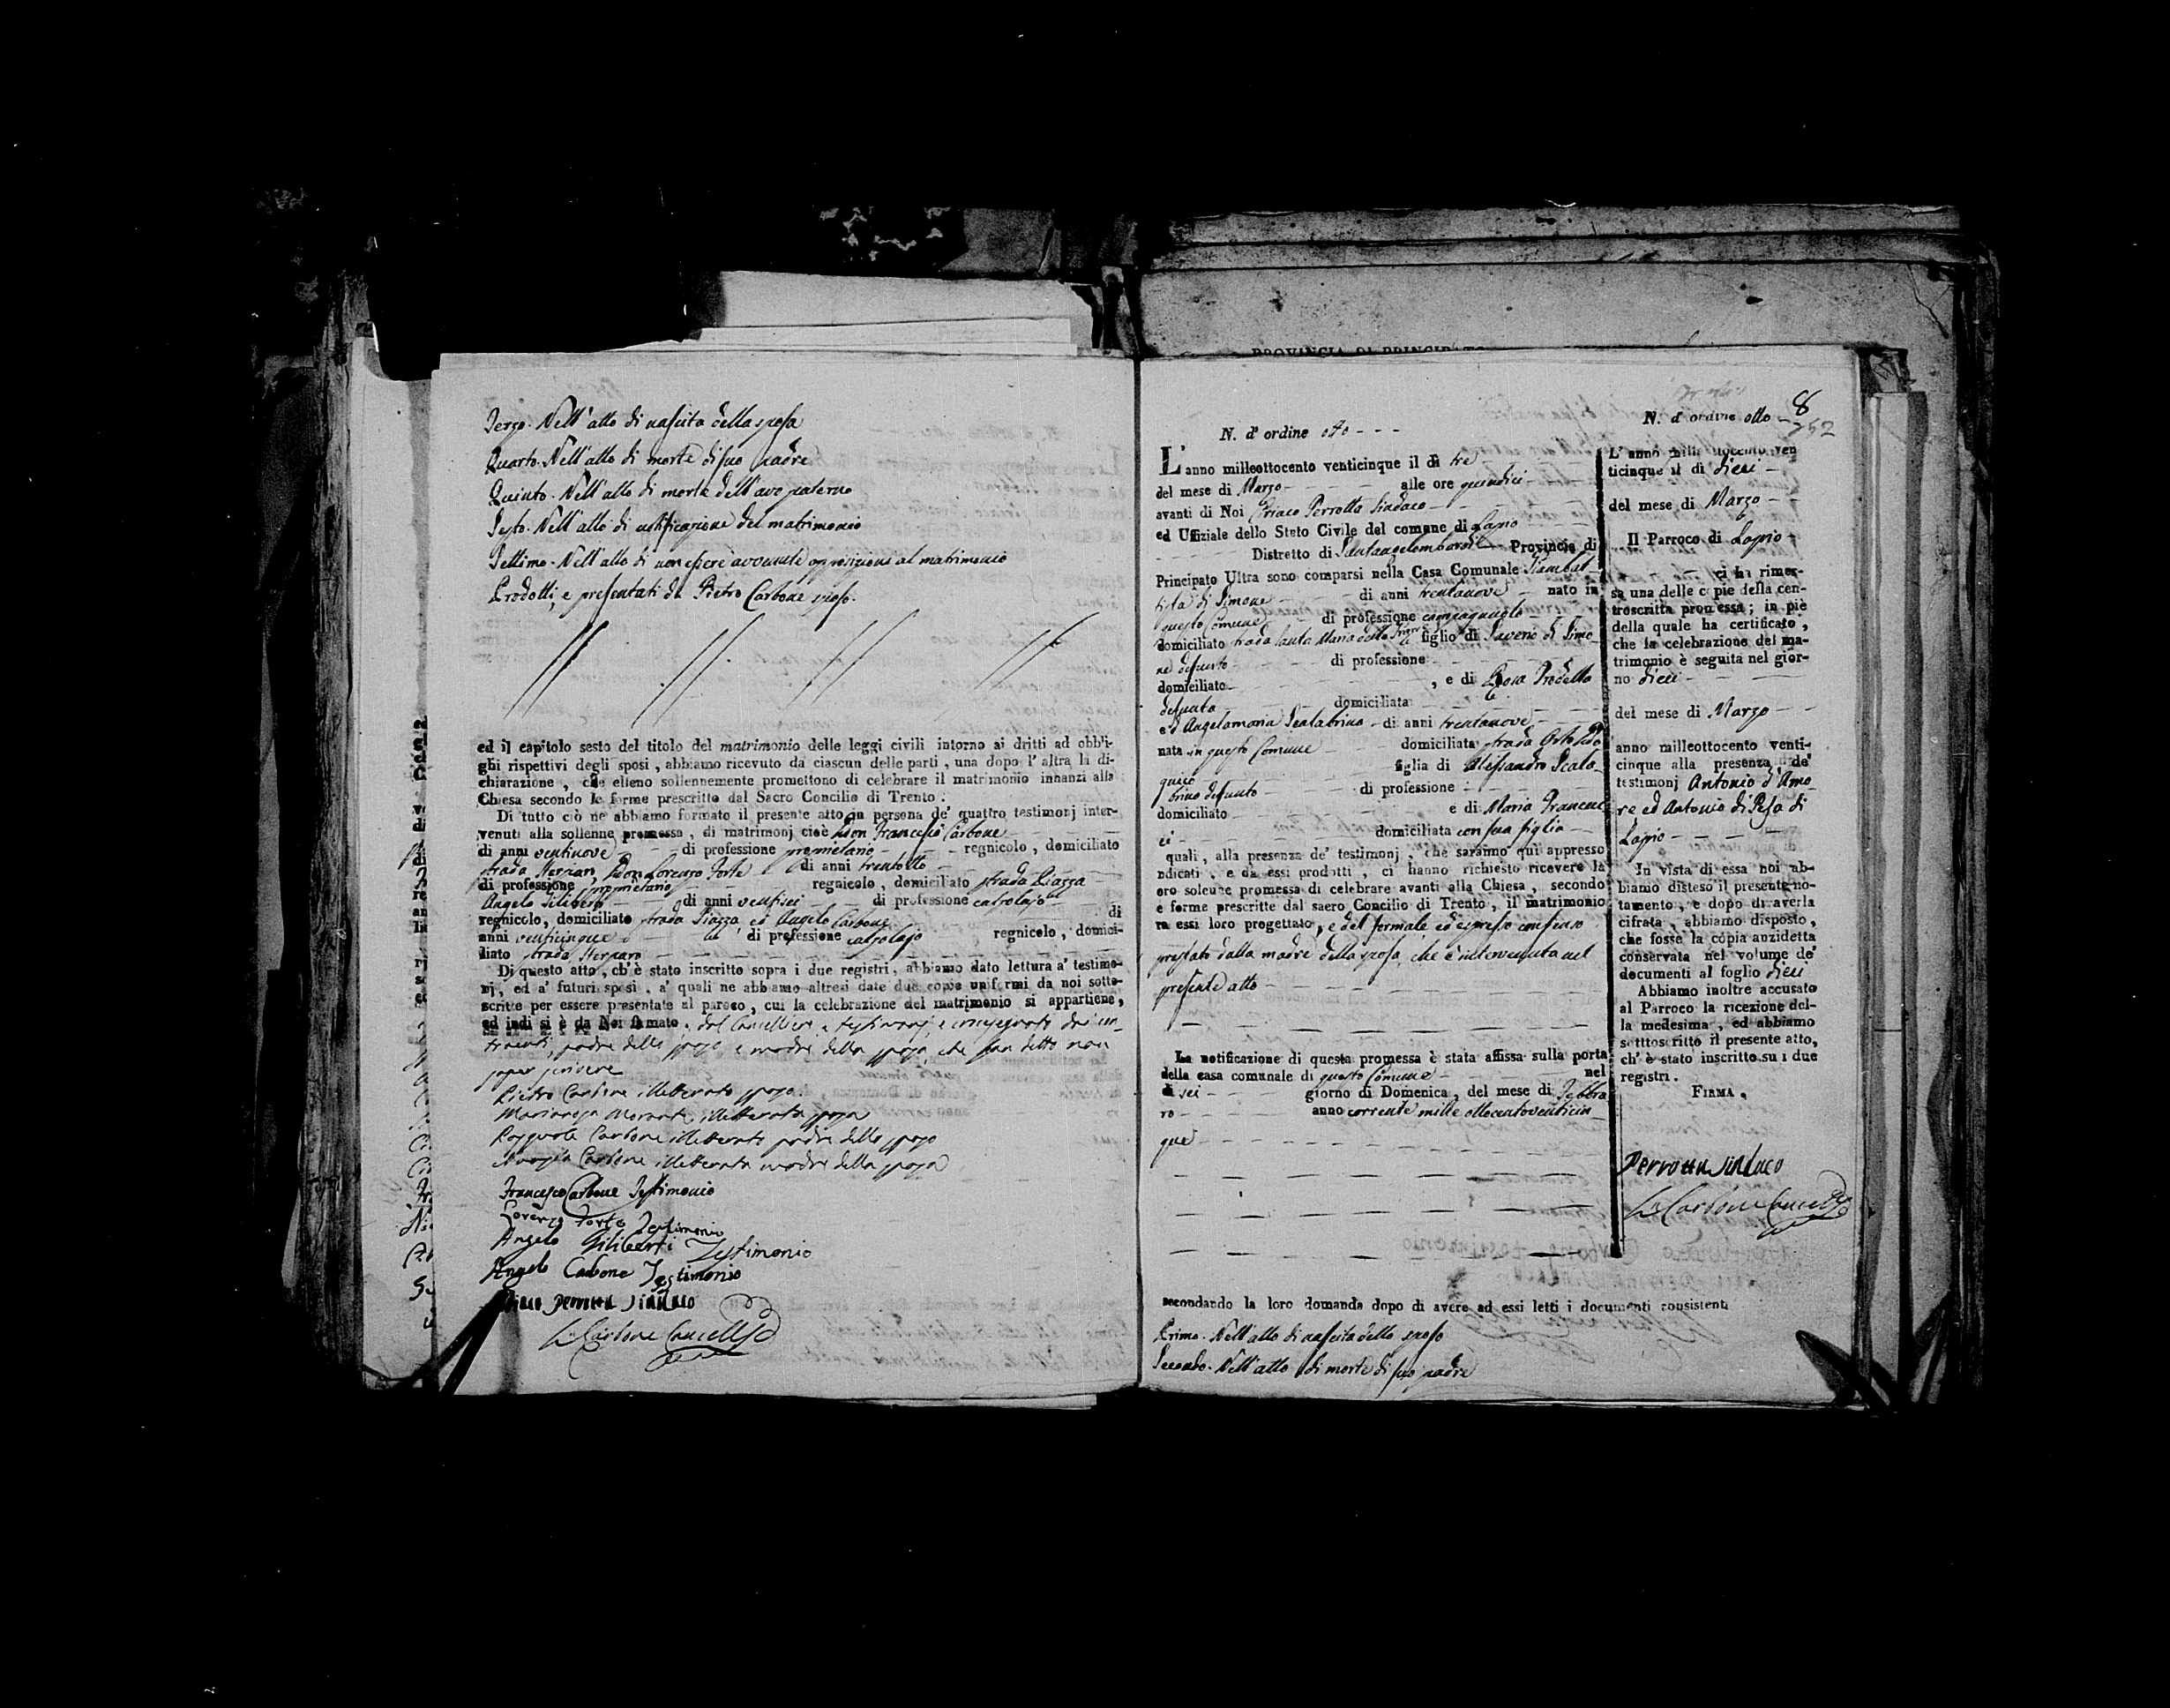 Terzo. Nell'atto di nascita della sposa
Quarto. Nell'atto di morte di suo padre
Quinto. Nell'atto di morte dell'avo paterno
Sesto. Nell'atto di notificazione del matrimonio
Settimo. Nell'atto di non essere avvenute opposizioni al matrimonio
Prodotti, e presentati da Pietro Carbone sposo.
ed il capitolo sesto del titolo del matrimonio delle leggi civili intorno ai dritti ad obbli-
ghi rispettivi degli sposi, abbiamo ricevuto da ciascun delle parti, una dopo l'altra la di-
chiarazione, che elleno sollennemente promettono di celebrare il matrimonio innanzi alla
Chiesa secondo le forme prescritte dal Sacro Concilio di Trento.
Di tutto ciò ne abbiamo formato il presente atto in persona de' quattro testimonj inter-
venuti alla sollenne promessa, di matrimonj cioè Don Francesco Carbone
di anni ventinove di professione proprietario regnicolo, domiciliato
strada Don Lorenzo Forte di anni trentotto
di professione proprietario regnicolo, domiciliato strada Piazza
Angelo Siliberti di anni ventisei di professione calzolajo
regnicolo, domiciliato strada Piazza ed Angelo Carbone di
anni venticinque di professione calzolajo regnicolo, domici-
liato strada
Di questo atto, ch'è stato inscritto sopra i due registri, abbiamo dato lettura a' testimo-
nj, ed a' futuri sposi, a' quali ne abbiamo altresì date due copie uniformi da noi sotto-
scritte per essere presentate al paroco, cui la celebrazione del matrimonio si appartiene,
ed indi si è da Noi firmato, dal Cancelliere, e testimonj e crocesegnato dai con-
traenti, padre dello sposo e madre della sposa, che han detto non
saper scrivere
Pietro Carbone illetterato sposo
Mariarosa Morante illetterata sposa
Pasquale Carbone illetterato padre dello sposo
Carbone illetterata madre della sposa
Francesco Carbone Testimonio
Lorenzo Forte Testimonio
Angelo Giliberti Testimonio
Angelo Carbone Testimonio
Perrotta Sindaco
Carbone Cancell.
PROVINCIA DI PRINCIPATO
N. d'ordine otto
L'anno milleottocento venticinque il dì tre
del mese di Marzo alle ore quindici
avanti di Noi Ciriaco Perrotta Sindaco
ed Uffiziale dello Stato Civile del comune di Lapio
Distretto di Santangelombardi Provincia di
Principato Ultra sono comparsi nella Casa Comunale Giambat-
tista di Simone di anni trentanove nato in
questo Comune di professione campagnuolo
domiciliato strada Santa Maria della figlio di Saverio di Simo-
ne defunto di professione
domiciliato , e di Rosa
defunta domiciliata
ed Angelamaria Scalabrino di anni trentanove
nata in questo Comune domiciliata strada
figlia di Alessandro Scala-
brino defunto di professione
domiciliato e di Maria
domiciliata con sua figlia
quali, alla presenza de' testimonj, che saranno quì appresso
ndicati, e da essi prodotti, ci hanno richiesto ricevere la
oro solenne promessa di celebrare avanti alla Chiesa, secondo
e forme prescritte dal sacro Concilio di Trento, il matrimonio
ra essi loro progettato, e del formale ed espresso consenso
prestato dalla madre della sposa, che è intervenuta nel
presente atto
La notificazione di questa promessa è stata affissa sulla porta
della casa comunale di questo Comune nel
dì sei giorno di Domenica, del mese di Febbra
ro anno corrente mille ottocentoventicin
que
secondando la loro domanda dopo di avere ad essi letti i documenti consistenti
Primo. Nell'atto di nascita dello sposo
Secondo. Nell'atto di morte di suo padre
8
N. d'ordine otto
L'anno mille ottocento ven
ticinque il dì dieci
del mese di Marzo
Il Parroco di Lapio
ci ha rimes-
sa una delle copie della con-
troscritta promessa; in piè
della quale ha certificato,
che la celebrazione del ma-
trimonio è seguita nel gior-
no dieci
del mese di Marzo
anno milleottocento venti-
cinque alla presenza de'
testimonj Antonio d'Amo-
re ed Antonio di
Lapio
In vista di essa noi ab-
biamo disteso il presente no-
tamento, e dopo di averla
cifrata, abbiamo disposto,
che fosse la copia anzidetta
conservata nel volume de'
documenti al foglio dieci
Abbiamo inoltre accusato
al Parroco la ricezione del-
la medesima, ed abbiamo
sotttoscritto il presente atto,
ch'è stato inscritto su i due
registri.
FIRMA.
Perrotta Sindaco
Carbone Cancell.